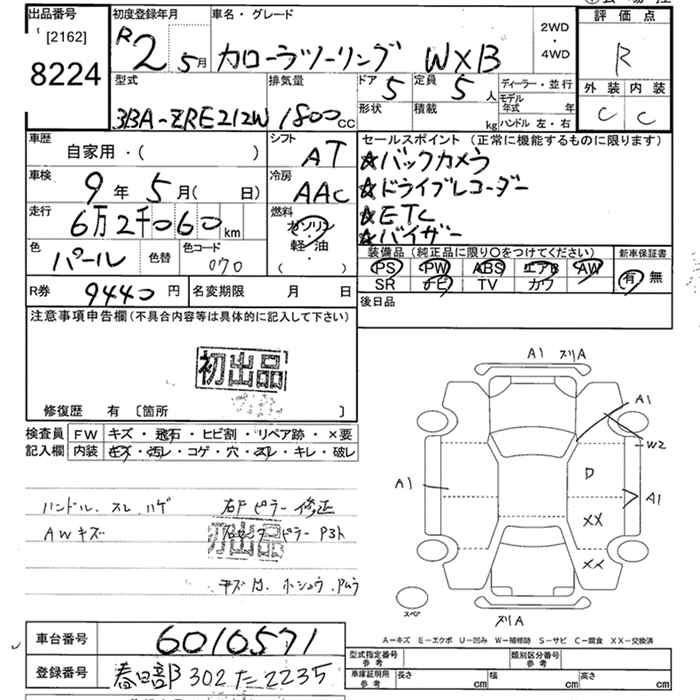 出品番号
[2162]
8224
初度登録年月
R2 5月
車名・グレード
カローラツーリング WXB
2WD
・
4WD
評価点
R
外装 内装
C C
型式
3BA-ZRE212W
排気量
1800cc
ドア
5
定員
5人
形状
積載
kg
ディーラー・並行
モデル年式 年
ハンドル 左・右
車歴
自家用・( )
車検
9年 5月( 日)
走行
6万2千060km
色
パール
色替
色コード
070
シフト
AT
冷房
AAC
燃料
ガソリン
軽・油
( ・ )
セールスポイント(正常に機能するものに限ります)
☆バックカメラ
☆ドライブレコーダー
☆ETC
☆バイザー
装備品(純正品に限り○をつけてください)
新車保証書
PS PW ABS エアB AW
SR ナビ TV カワ
有 無
R券 9440円
名変期限 月 日
後日品
注意事項申告欄(不具合内容等は具体的に記入して下さい)
初出品
修復歴 有 [箇所 ]
検査員記入欄
FW キズ・飛石・ヒビ割・リペア跡・×要
内装 キズ・汚レ・コゲ・穴・スレ・キレ・破レ
ハンドル スレ ハゲ
AWキズ
右Fピラー修正
ピラー
初出品
A1 スリA
A1
W2
A1
D
A1
XX
XX
スペア
スリA
A－キズ E－エクボ U－凹み W－補修跡 S－サビ C－腐食 XX－交換済
車台番号 6010571
登録番号 春日部302た2235
型式指定番号
参考
類別区分番号
参考
車庫証明用
参考
長さ cm
幅 cm
高さ cm